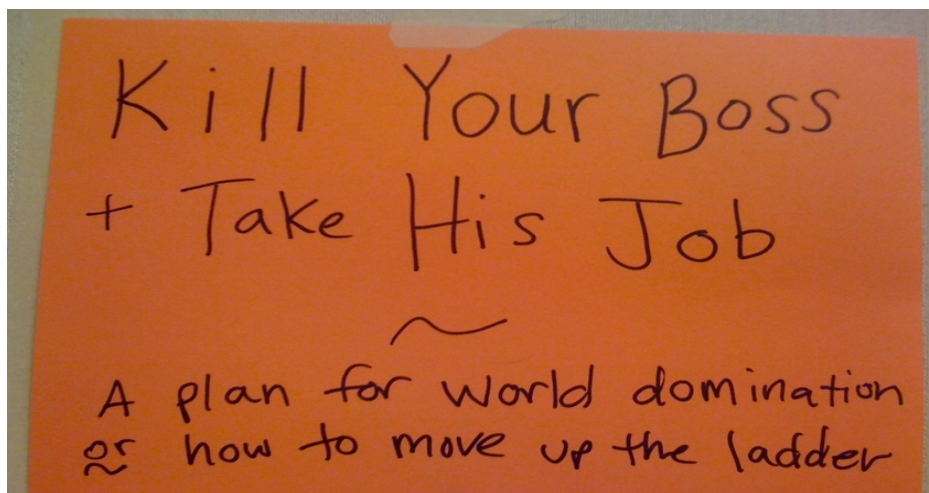 Kill Your Boss
+ Take His Job
~
A plan for world domination
or how to move up the ladder